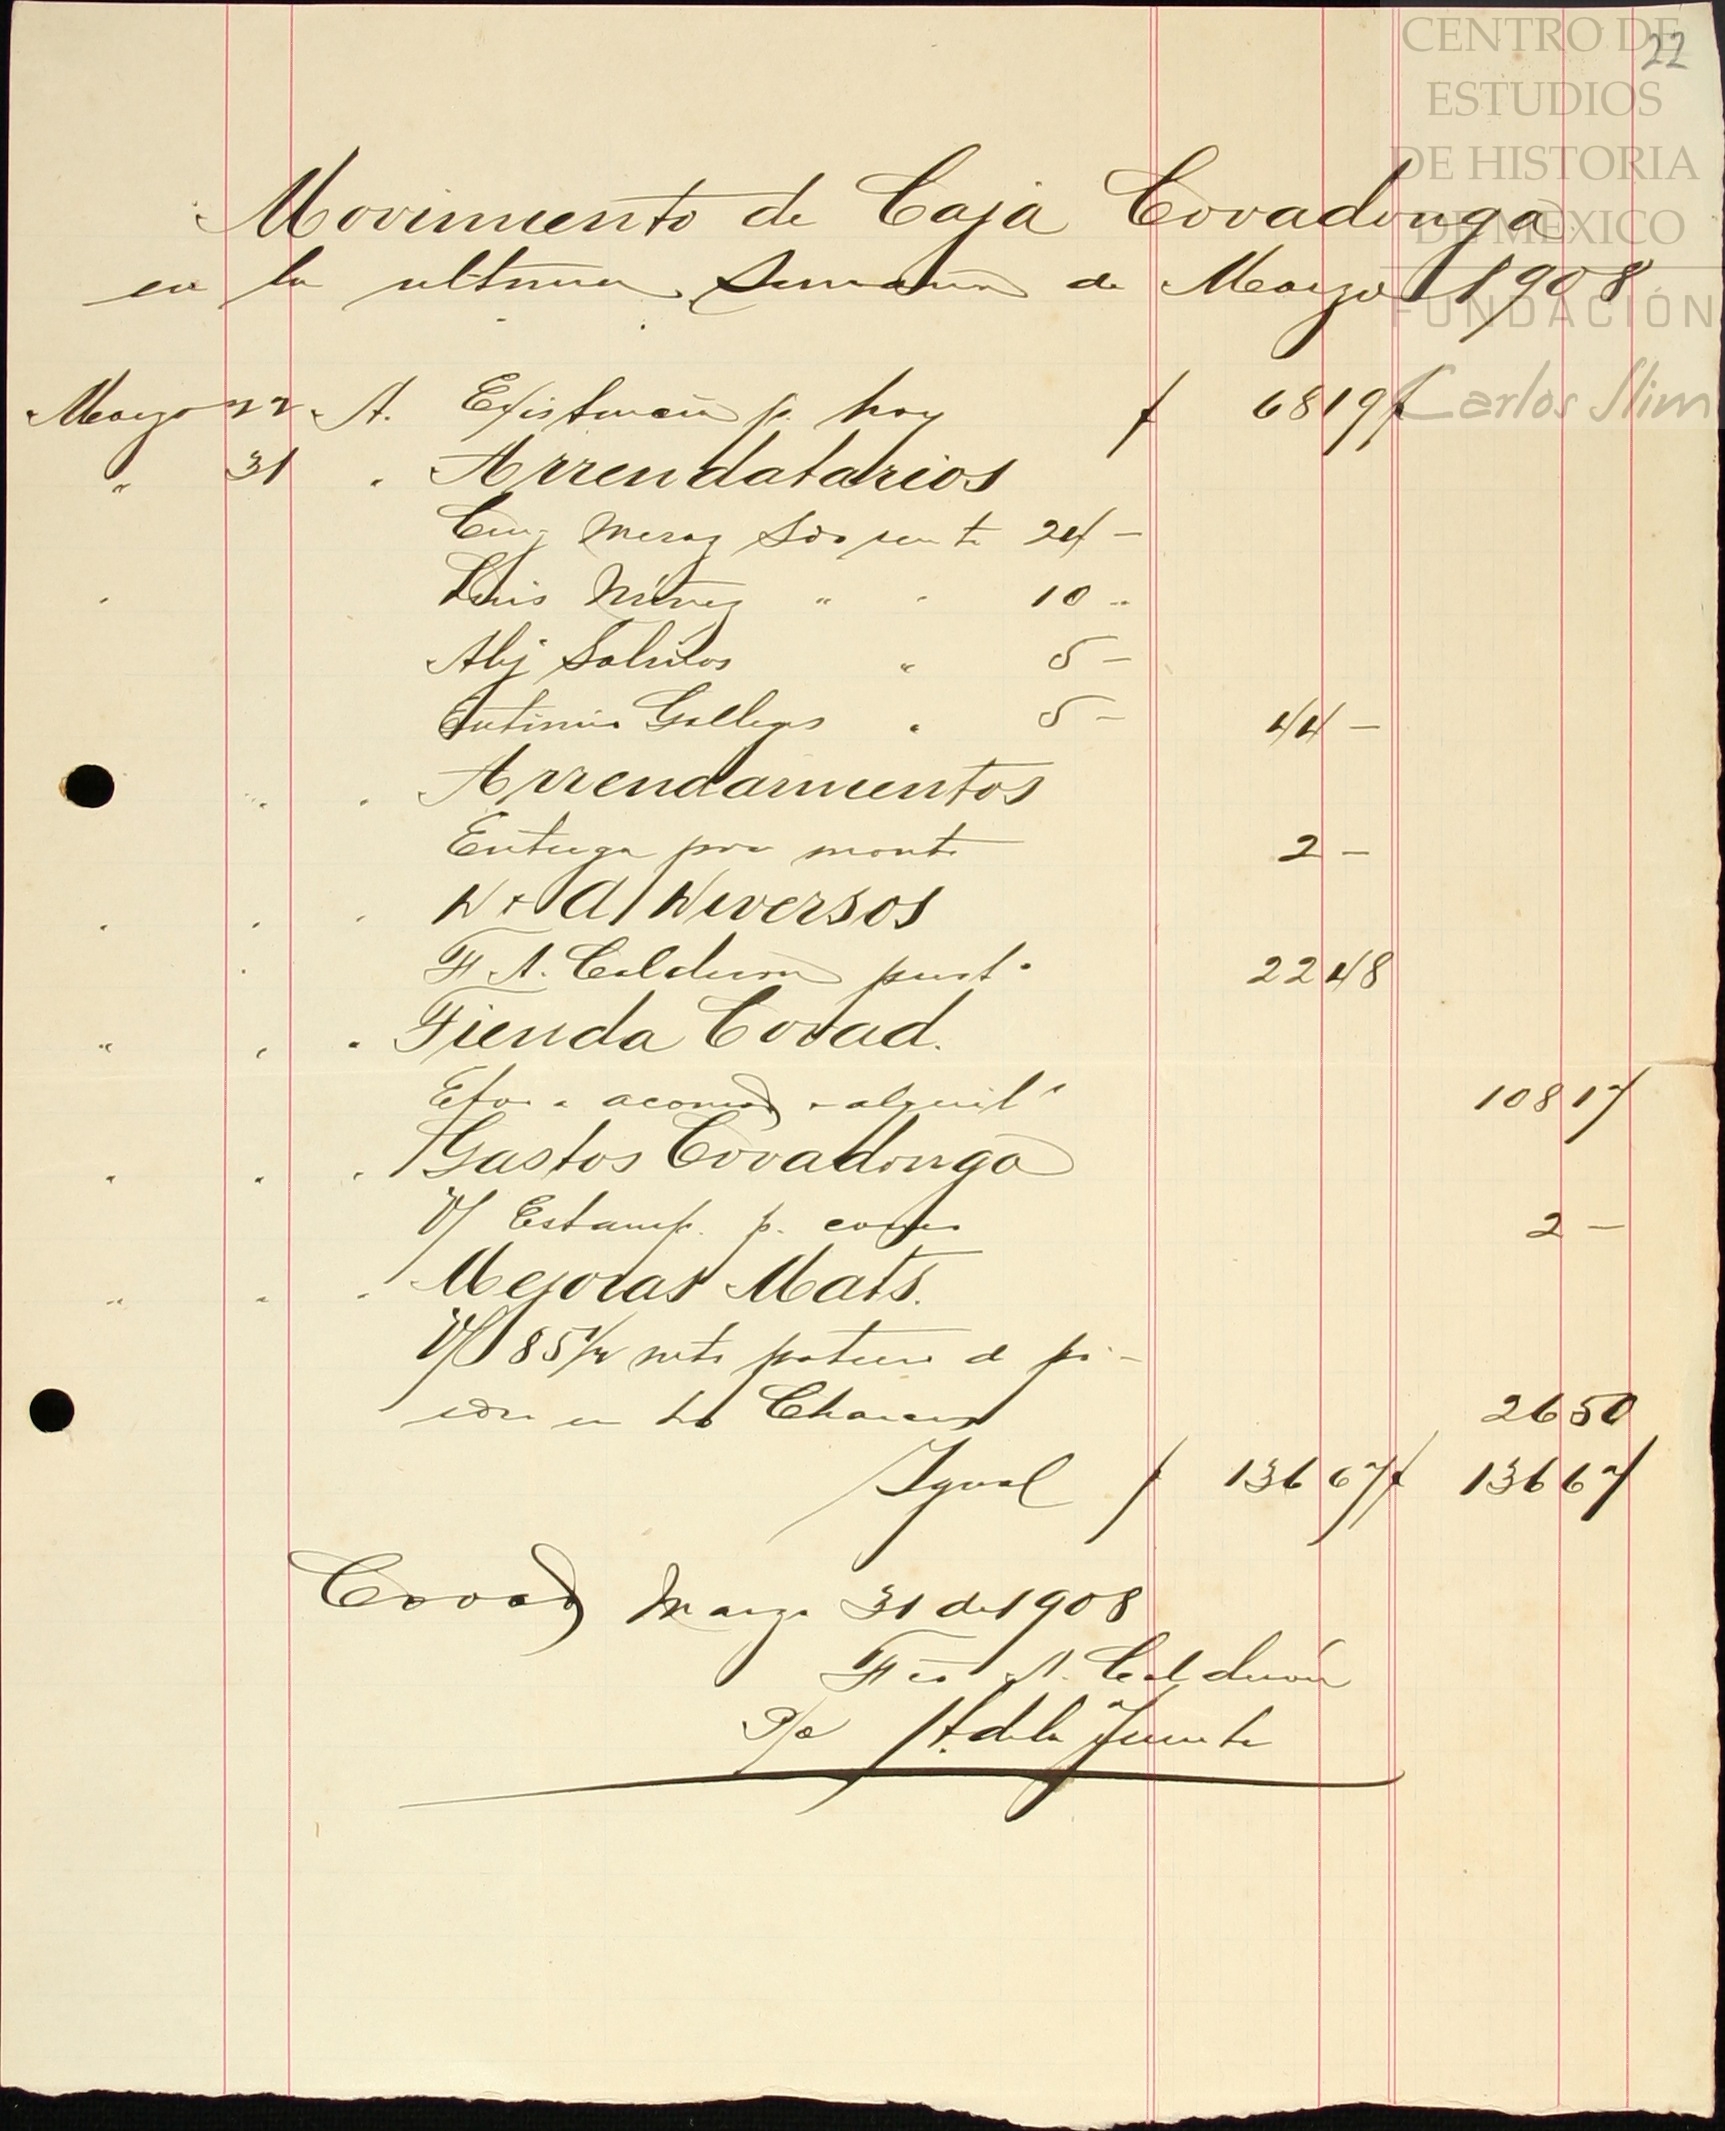 22
CENTRO DE
ESTUDIOS
DE HISTORIA
DE MÉXICO
FUNDACIÓN
Carlos Slim
Movimiento de Caja Covadonga
en la ultima Semana de Marzo 1908
Marzo 22 A. Existencia p. hoy $ 68 19 $
" 31 " Arrendatarios
Meraz renta 24 -
Luis Núnez " " 10 "
Alej " 5 -
Gallegos " 5 - 44 -
" " Arrendamientos
Entrega por monte 2 -
" " " D & A/ Diversos
F. A. Calderon 22 48
" " " Tienda Covad.
108 17
" " " Gastos Covadonga
V/ Estamp. p. 2 -
" " " Mejoras Mats.
V/ 85 1/2 mts de pi-
en 26 50
Igual $ 136 67 $ 136 67
Covad Marzo 31 de 1908
Fco A. Calderón
P/o A. de la Fuente